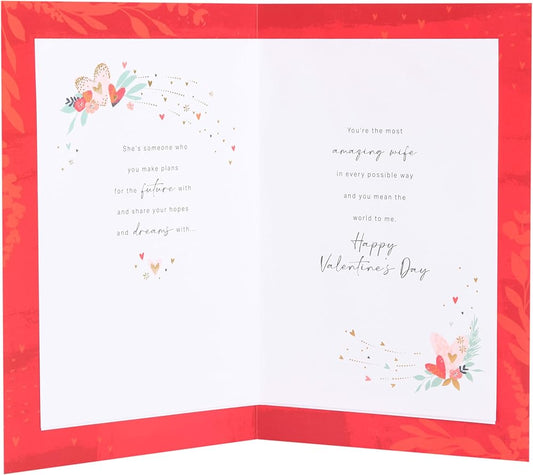 She's someone who
you make plans
for the future with
and share your hopes
and dreams with...
You're the most
amazing wife
in every possible way
and you mean the
world to me.
Happy
Valentine's Day